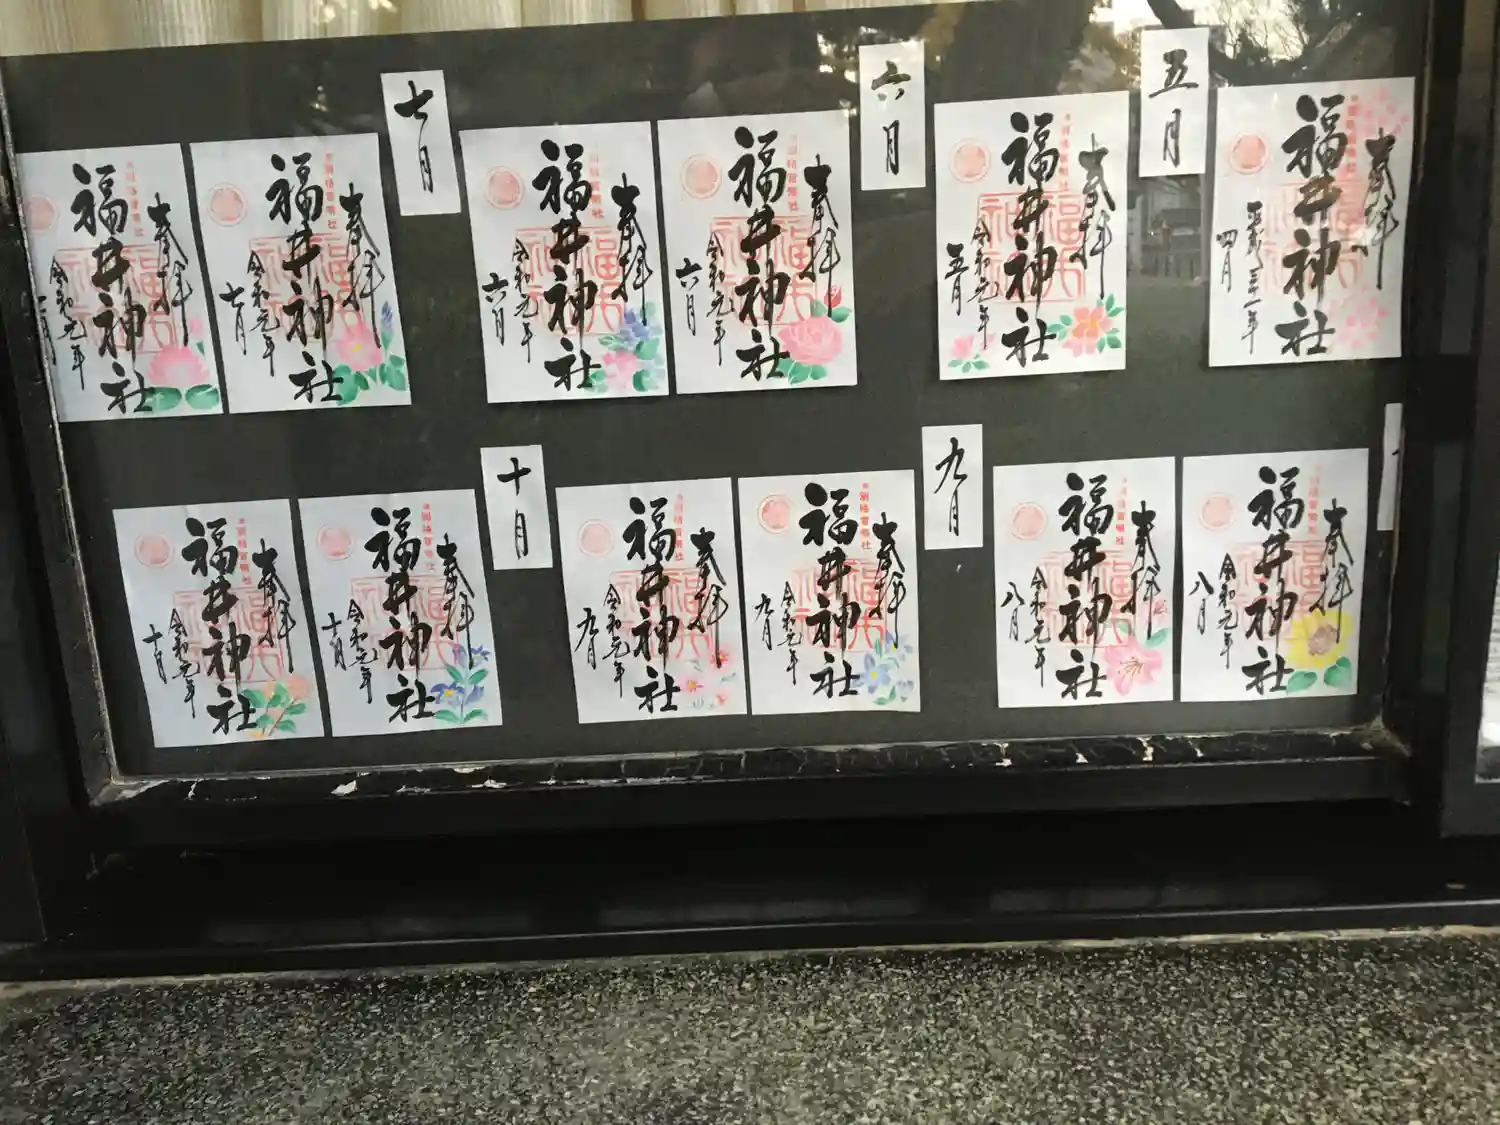 奉拝
福井神社
平成三十一年
四月
五月
奉拝
福井神社
令和元年
五月
六月
奉拝
福井神社
令和元年
六月
奉拝
福井神社
令和元年
六月
七月
奉拝
福井神社
令和元年
七月
奉拝
福井神社
令和元年
七月
奉拝
福井神社
令和元年
八月
奉拝
福井神社
令和元年
八月
九月
奉拝
福井神社
令和元年
九月
奉拝
福井神社
令和元年
九月
十月
奉拝
福井神社
令和元年
十月
奉拝
福井神社
令和元年
十月